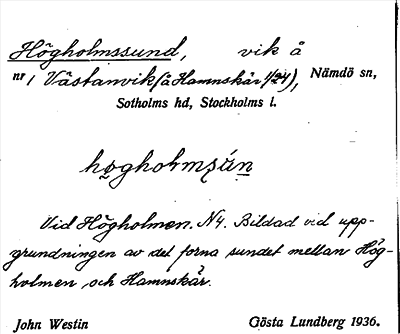 Högholmssund, vik å
nr 1 Västanvik (å Hamnskär 1/24), Nämdö sn,
Sotholms hd, Stockholms l.
høgholmsùn
Vid Högholmen. N4. Bildad vid upp-
grundningen av det forna sundet mellan Hög-
holmen och Hamnskär.
John Westin Gösta Lundberg 1936.